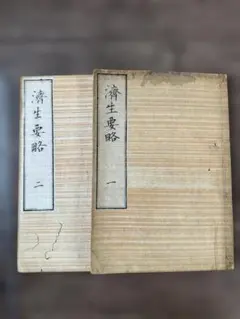 濟生要略 一
濟生要略 二